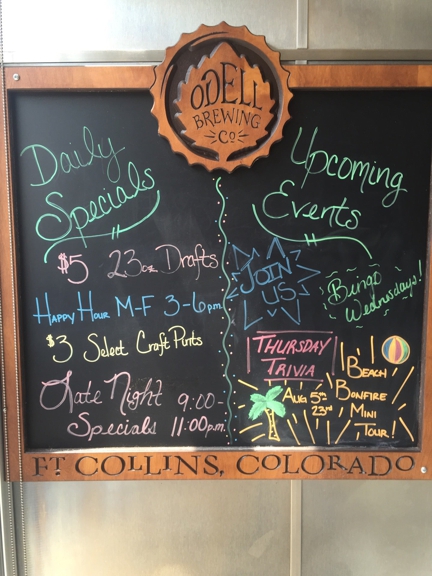 ODELL
BREWING
Co
Daily
Specials
$5 23oz Drafts
Happy Hour M-F 3-6pm
$3 Select Craft Pints
Late Night 9:00-
Specials 11:00p.m.
Upcoming
Events
JOIN
US
Bingo
Wednesdays!
THURSDAY
TRIVIA
Aug 5th
23rd
Beach
Bonfire
Mini
Tour!
FT COLLINS, COLORADO